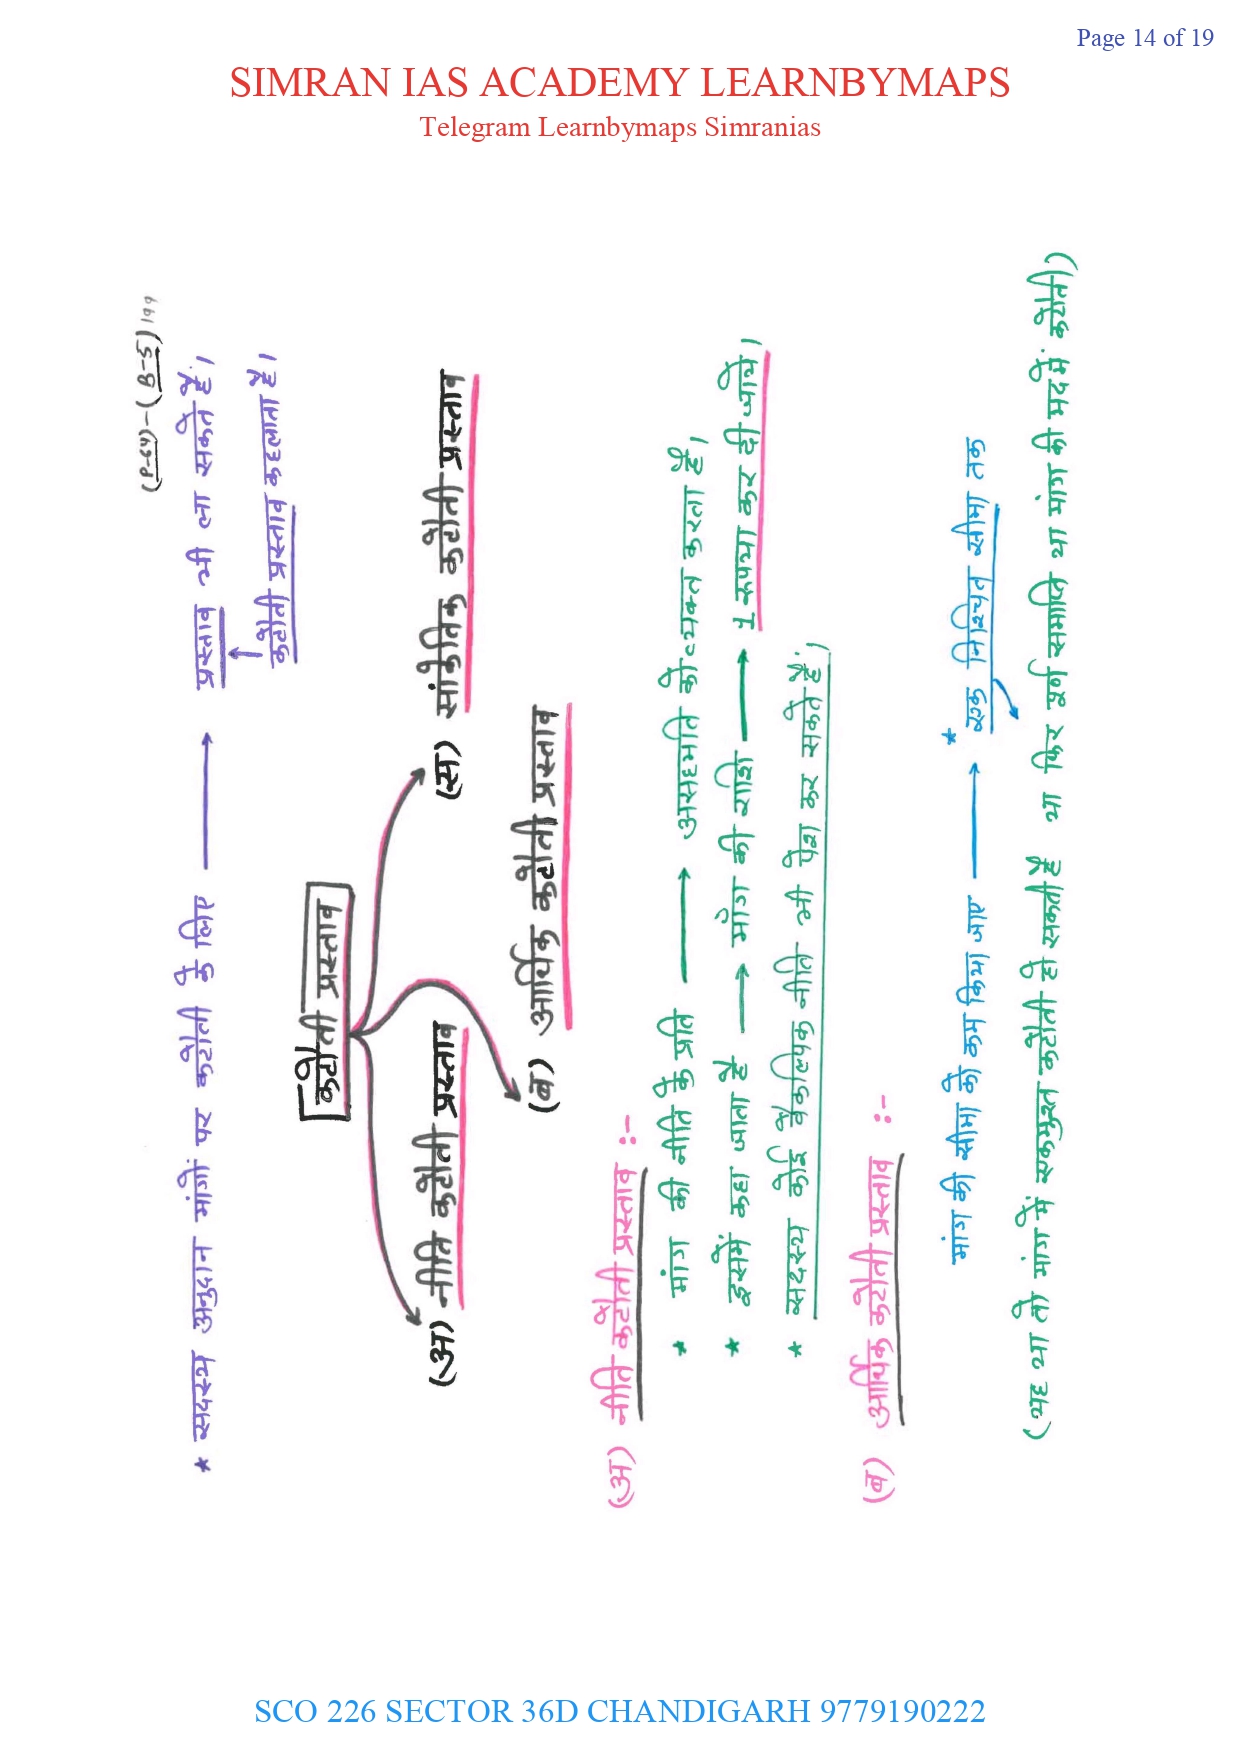 Page 14 of 19
SIMRAN IAS ACADEMY LEARNBYMAPS
Telegram Learnbymaps Simranias
(P-64)-(B-5) 199
* सदस्य अनुदान मांगों पर कटौती के लिए → प्रस्ताव भी ला सकते हैं।
कटौती प्रस्ताव कहलाता है।
कटौती प्रस्ताव
(अ) नीति कटौती प्रस्ताव
(स) सांकेतिक कटौती प्रस्ताव
(ब) आर्थिक कटौती प्रस्ताव
(अ) नीति कटौती प्रस्ताव :-
* मांग की नीति के प्रति → असहमति को व्यक्त करता है।
* इसमें कहा जाता है → मांग की राशि → 1 रूपया कर दी जाये।
* सदस्य कोई वैकल्पिक नीति भी पेश कर सकते हैं।
(ब) आर्थिक कटौती प्रस्ताव :-
मांग की सीमा को कम किया जाए → * एक निश्चित सीमा तक
(यह या तो मांग में एकमुश्त कटौती हो सकती है या फिर पूर्ण समाप्ति या मांग की मद में कटौती)
SCO 226 SECTOR 36D CHANDIGARH 9779190222